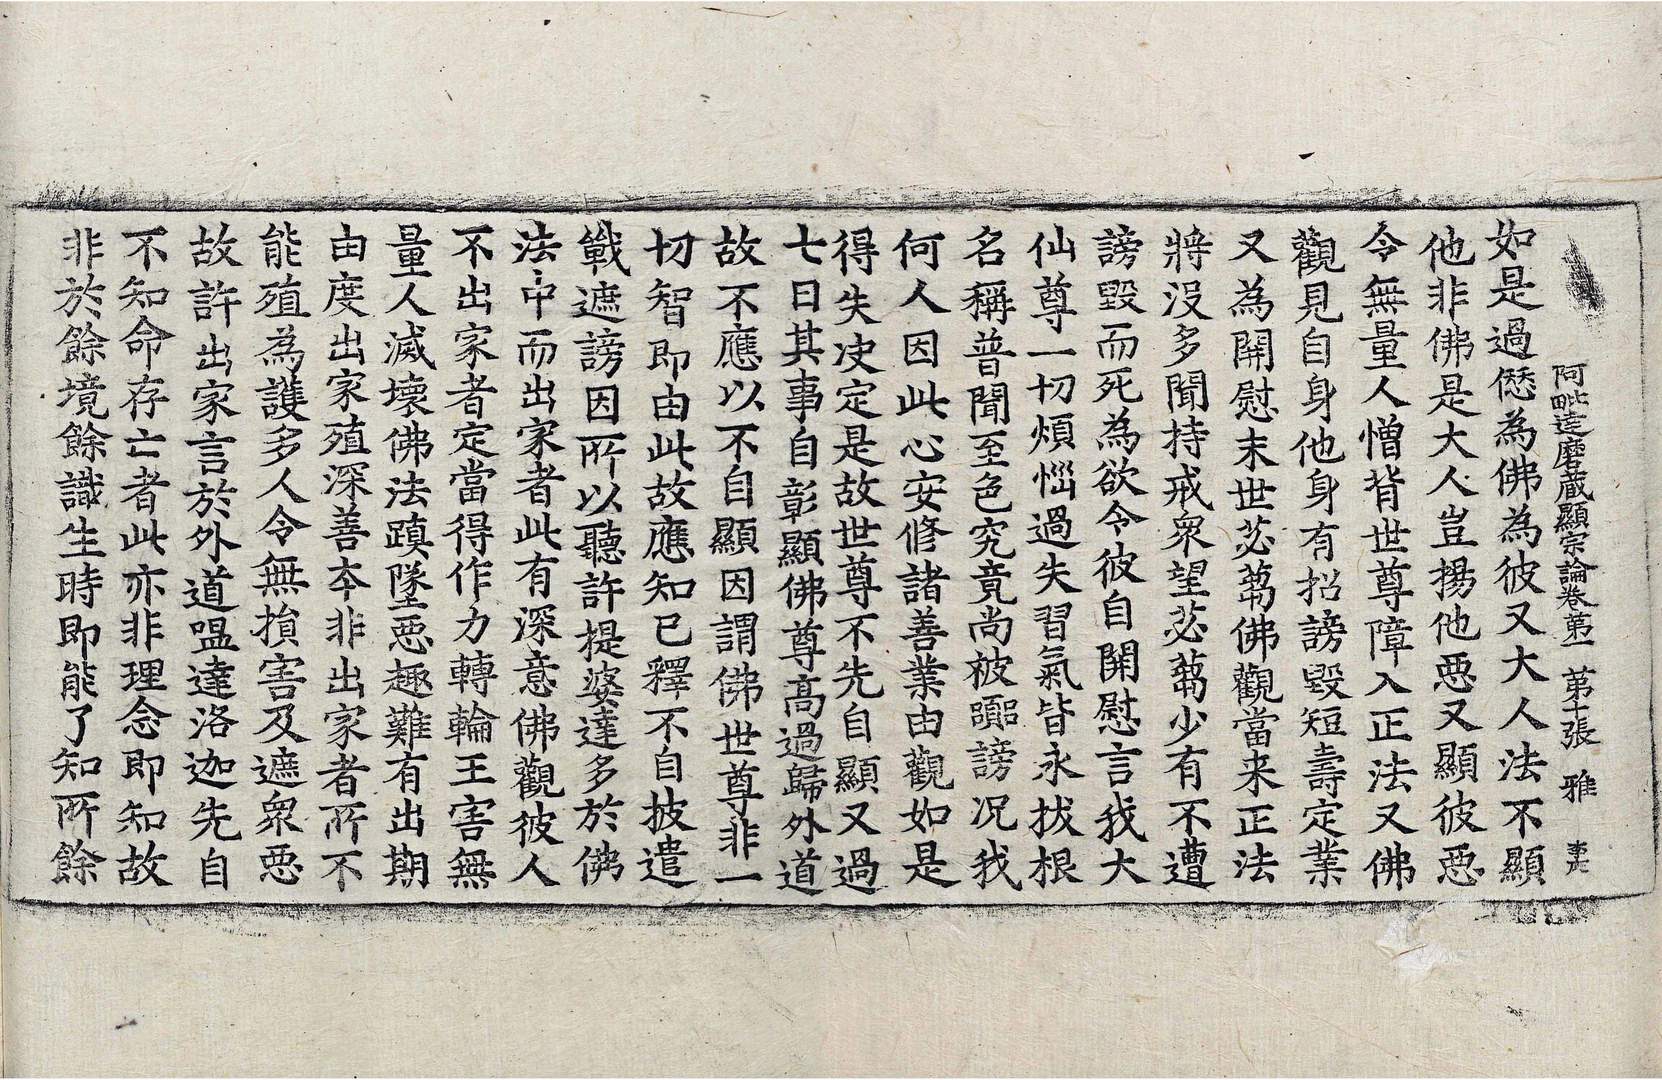 阿毗達磨藏顯宗論卷第一 第十張 雅
如是過愆為佛為彼又大人法不顯
他非佛是大人豈揚他惡又顯彼惡
令無量人憎背世尊障入正法又佛
觀見自身他身有招謗毀短壽定業
又為開慰末世苾蒭佛觀當来正法
將没多聞持戒衆望苾蒭少有不遭
謗毀而死為欲令彼自開慰言我大
仙尊一切煩惱過失習氣皆永拔根
名稱普聞至色究竟尚被謗况我
何人因此心安修諸善業由觀如是
得失决定是故世尊不先自顯又過
七日其事自彰顯佛尊高過歸外道
故不應以不自顯因謂佛世尊非一
切智即由此故應知已釋不自披遣
戰遮謗因所以聽許提婆達多於佛
法中而出家者此有深意佛觀彼人
不出家者定當得作力轉輪王害無
量人滅壞佛法蹎墜惡趣難有出期
由度出家殖深善夲非出家者所不
能殖為護多人令無損害及遮衆惡
故許出家言於外道嗢達洛迦先自
不知命存亡者此亦非理念即知故
非於餘境餘識生時即能了知所餘